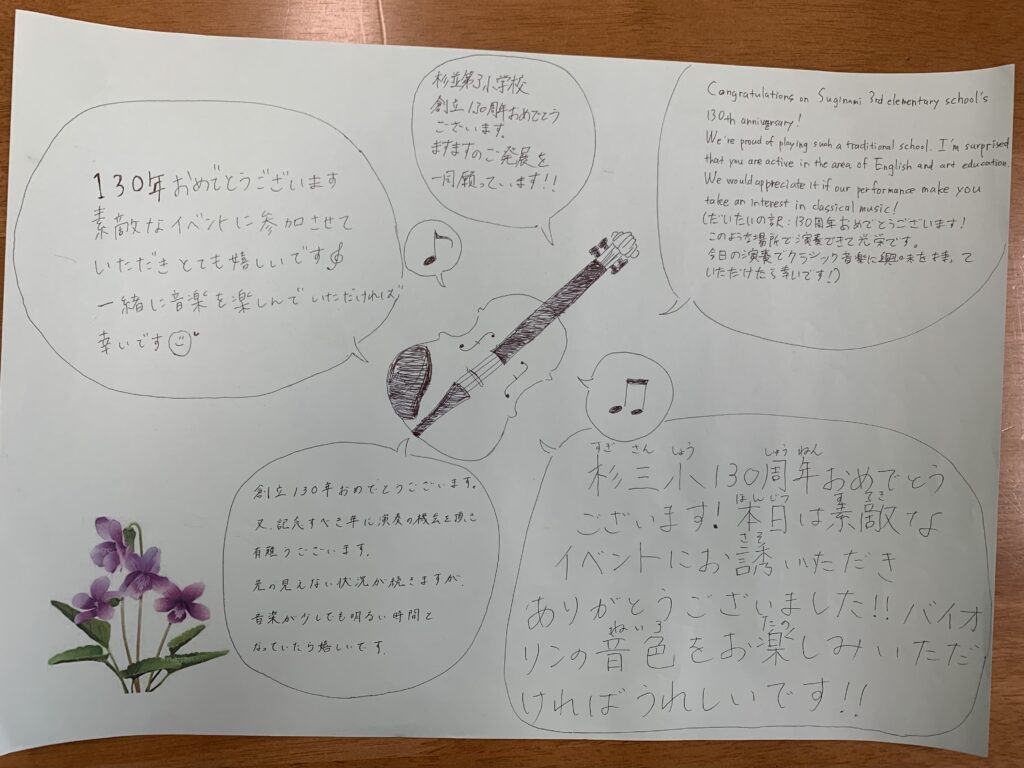 杉並第3小学校
創立130周年おめでとう
ございます。
ますますのご発展を
一同願っています!!
130年おめでとうございます
素敵なイベントに参加させて
いただきとても嬉しいです
一緒に音楽を楽しんでいただければ
幸いです
Congratulations on Suginami 3rd elementary school's
130th anniversary!
We're proud of playing such a traditional school. I'm surprised
that you are active in the area of English and art education.
We would appreciate it if our performance make you
take an interest in classical music!
(だいたいの訳:130周年おめでとうございます!
このような場所で演奏できて光栄です。
今日の演奏でクラシック音楽に興味を持って
いただけたら幸いです!)
創立130年おめでとうございます。
又、記念すべき年に演奏の機会を頂き
有難うございます。
先の見えない状況が続きますが、
音楽が少しでも明るい時間と
なっていたら嬉しいです。
すぎ さん しょう しゅう ねん
杉三小130周年おめでとう
ほんじつ す てき
ございます!本日は素敵な
さそ
イベントにお誘いただき
ありがとうございました!!バイオ
ねいろ たの
リンの音色をお楽しみいただ
ければうれしいです!!